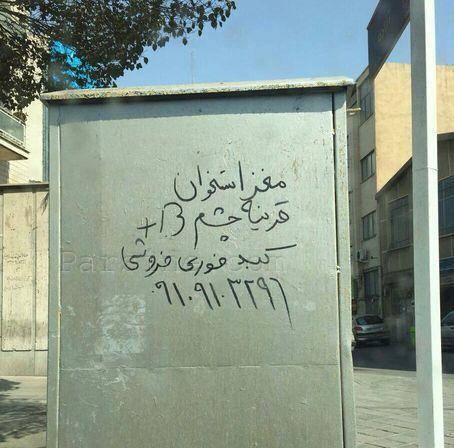 مغز استخوان
قرنیه چشم B+
کبد فوری فروشی
۰۹۱۰۹۱۰۳۲۹۶